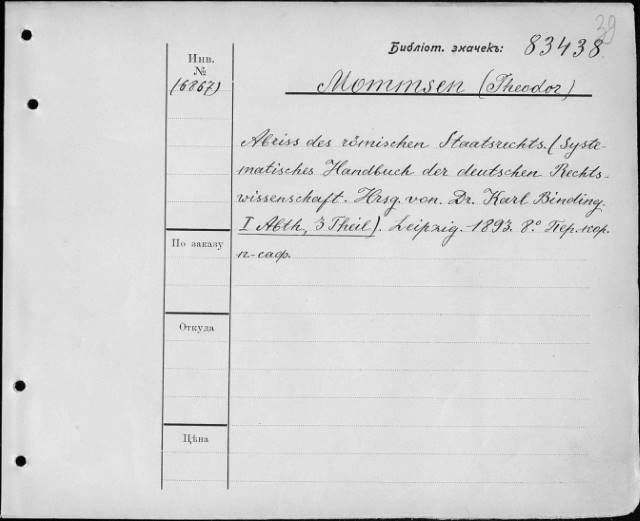 39
Библіот. значекъ: 83438
Инв.
№
(6867)
Mommsen (Theodor)
Abriss des römischen Staatsrechts. (Syste-
matisches Handbuch der deutschen Rechts-
wissenschaft. Hrsg. von. Dr. Karl Binding.
I Abth, 3 Theil). Leipzig. 1893. 8º. Пер. кор.
п.-саф.
По заказу
Откуда
Цѣна